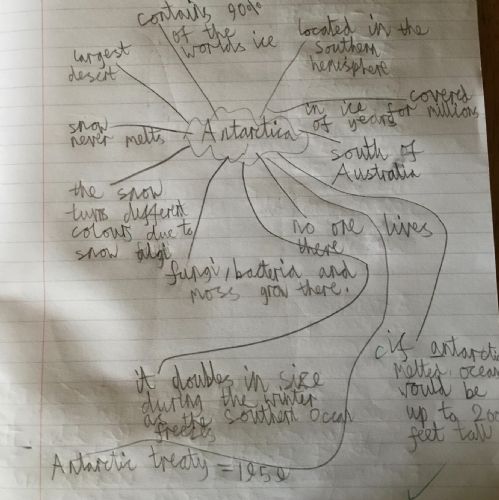 contains 90%
of the
worlds ice
located in the
southern
hemisphere
largest
desert
covered
in ice for millions
of years
snow
never melts
Antarctica
south of
Australia
the snow
turns different
colours due to
snow algi
no one lives
there
fungi, bacteria and
moss grow there.
if antarctic
melted, ocean
would be
up to 200
feet tall
it doubles in size
during the winter
as the southern ocean
freezes
Antarctic treaty = 1959